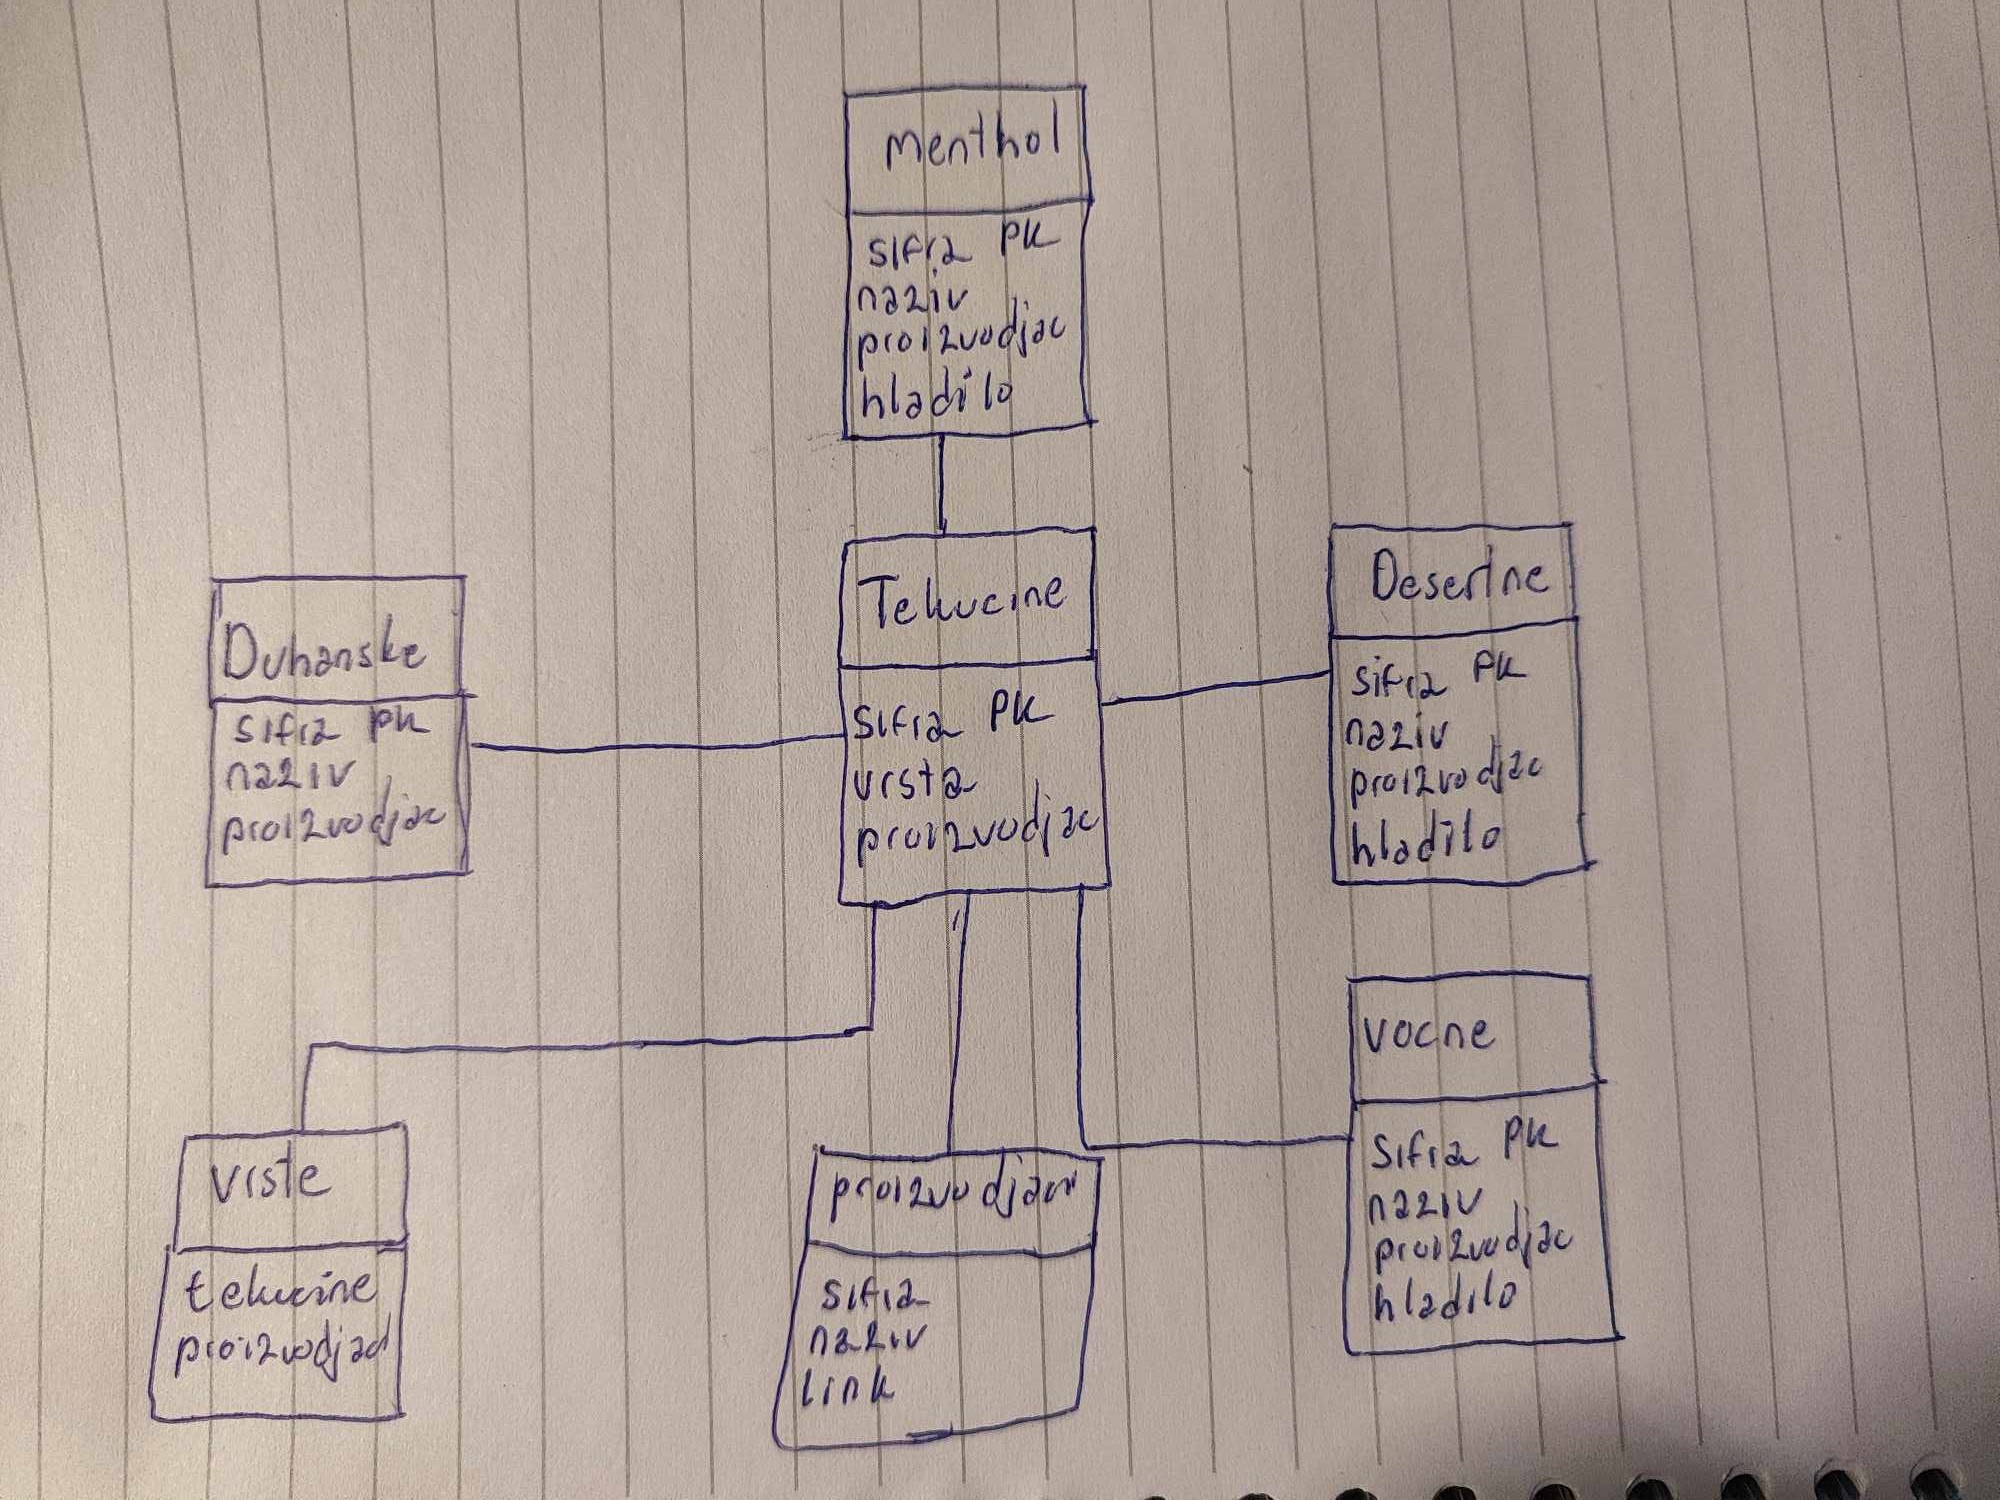 Menthol
sifra PK
naziv
proizvodjac
hladilo
Duhanske
sifra PK
naziv
proizvodjac
Tekucine
sifra PK
vrsta
proizvodjac
Desertne
sifra PK
naziv
proizvodjac
hladilo
vocne
sifra PK
naziv
proizvodjac
hladilo
vrste
tekucine
proizvodjad
proizvodjaci
sifra
naziv
link